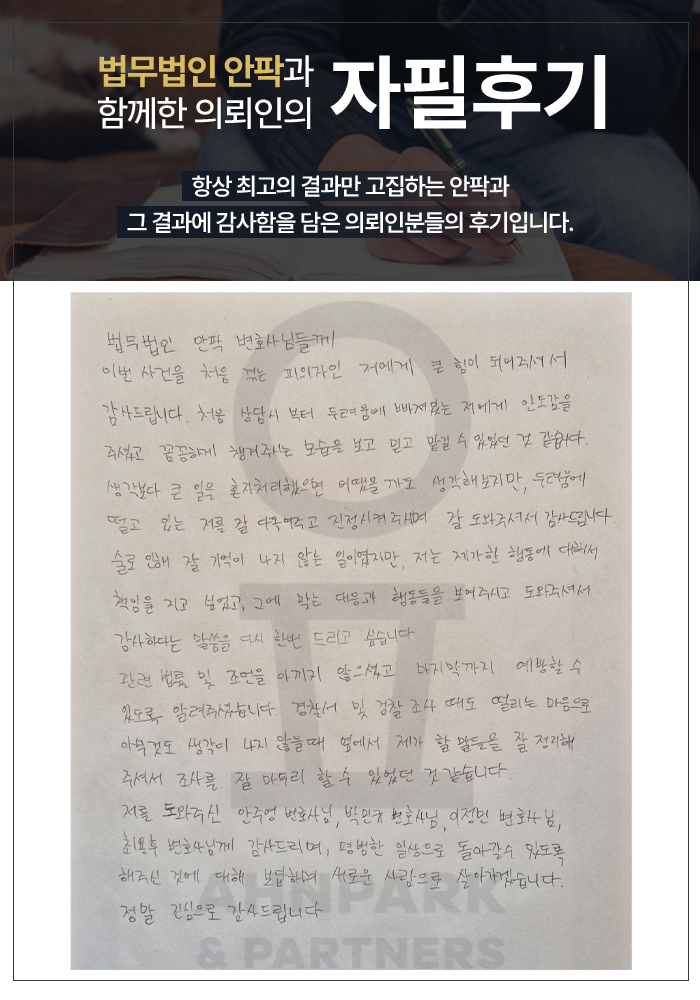 법무법인 안팍과
함께한 의뢰인의
자필후기
항상 최고의 결과만 고집하는 안팍과
그 결과에 감사함을 담은 의뢰인분들의 후기입니다.
법무법인 안팍 변호사님들께
이번 사건을 처음 겪는 피의자인 저에게 큰 힘이 되어주셔서
감사드립니다. 처음 상담시 부터 두려움에 빠져있는 저에게 안도감을
주셨고 꼼꼼하게 챙겨주시는 모습을 보고 믿고 맡길 수 있었던 것 같습니다.
생각보다 큰 일을 혼자처리했으면 어땠을까도 생각해보지만, 두려움에
떨고 있는 저를 잘 다독여주고 진정시켜주시며 잘 도와주셔서 감사드립니다
술로 인해 잘 기억이 나지 않는 일이였지만, 저는 제가한 행동에 대해서
책임을 지고 싶었고, 그에 맞는 대응과 행동들을 보여주시고 도와주셔서
감사하다는 말씀을 다시 한번 드리고 싶습니다.
관련 법률 및 조언을 아끼지 않으셨고 마지막까지 예방할 수
있도록 알려주셨습니다. 경찰서 및 검찰 조사 때도 떨리는 마음으로
아무것도 생각이 나지 않을때 옆에서 제가 할 말들을 잘 정리해
주셔서 조사를 잘 마무리 할 수 있었던 것 같습니다.
저를 도와주신 안주영 변호사님, 박민규 변호사님, 이정민 변호사님,
최용후 변호사님께 감사드리며, 평범한 일상으로 돌아갈수 있도록
해주신 것에 대해 보답하며 새로운 사람으로 살아가겠습니다.
정말 진심으로 감사드립니다
AHNPARK
& PARTNERS